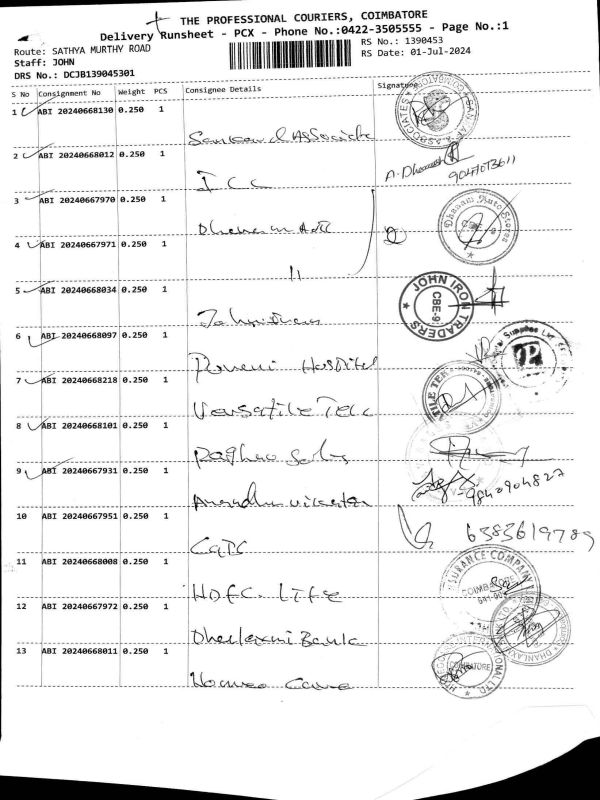 THE PROFESSIONAL COURIERS, COIMBATORE
Delivery Runsheet - PCX - Phone No.:0422-3505555 - Page No.:1
Route: SATHYA MURTHY ROAD
RS No.: 1390453
Staff: JOHN
RS Date: 01-Jul-2024
DRS No.: DCJB139045301
S No Consignment No Weight PCS Consignee Details Signature
1 ABI 20240668130 0.250 1
ASSOCIATES
2 ABI 20240668012 0.250 1
I C C
A. 
3 ABI 20240667970 0.250 1
Dhanam Auto Stores
4 ABI 20240667971 0.250 1
11
5 ABI 20240668034 0.250 1
JOHN IRON TRADERS CBE-9
6 ABI 20240668097 0.250 1
Hospital
7 ABI 20240668218 0.250 1
Versatile Tek
8 ABI 20240668101 0.250 1
9 ABI 20240667931 0.250 1
9840904827
10 ABI 20240667951 0.250 1
6383619789
11 ABI 20240668008 0.250 1
HDFC. Life
INSURANCE COMPANY
COIMBATORE
12 ABI 20240667972 0.250 1
Bank
13 ABI 20240668011 0.250 1
COIMBATORE